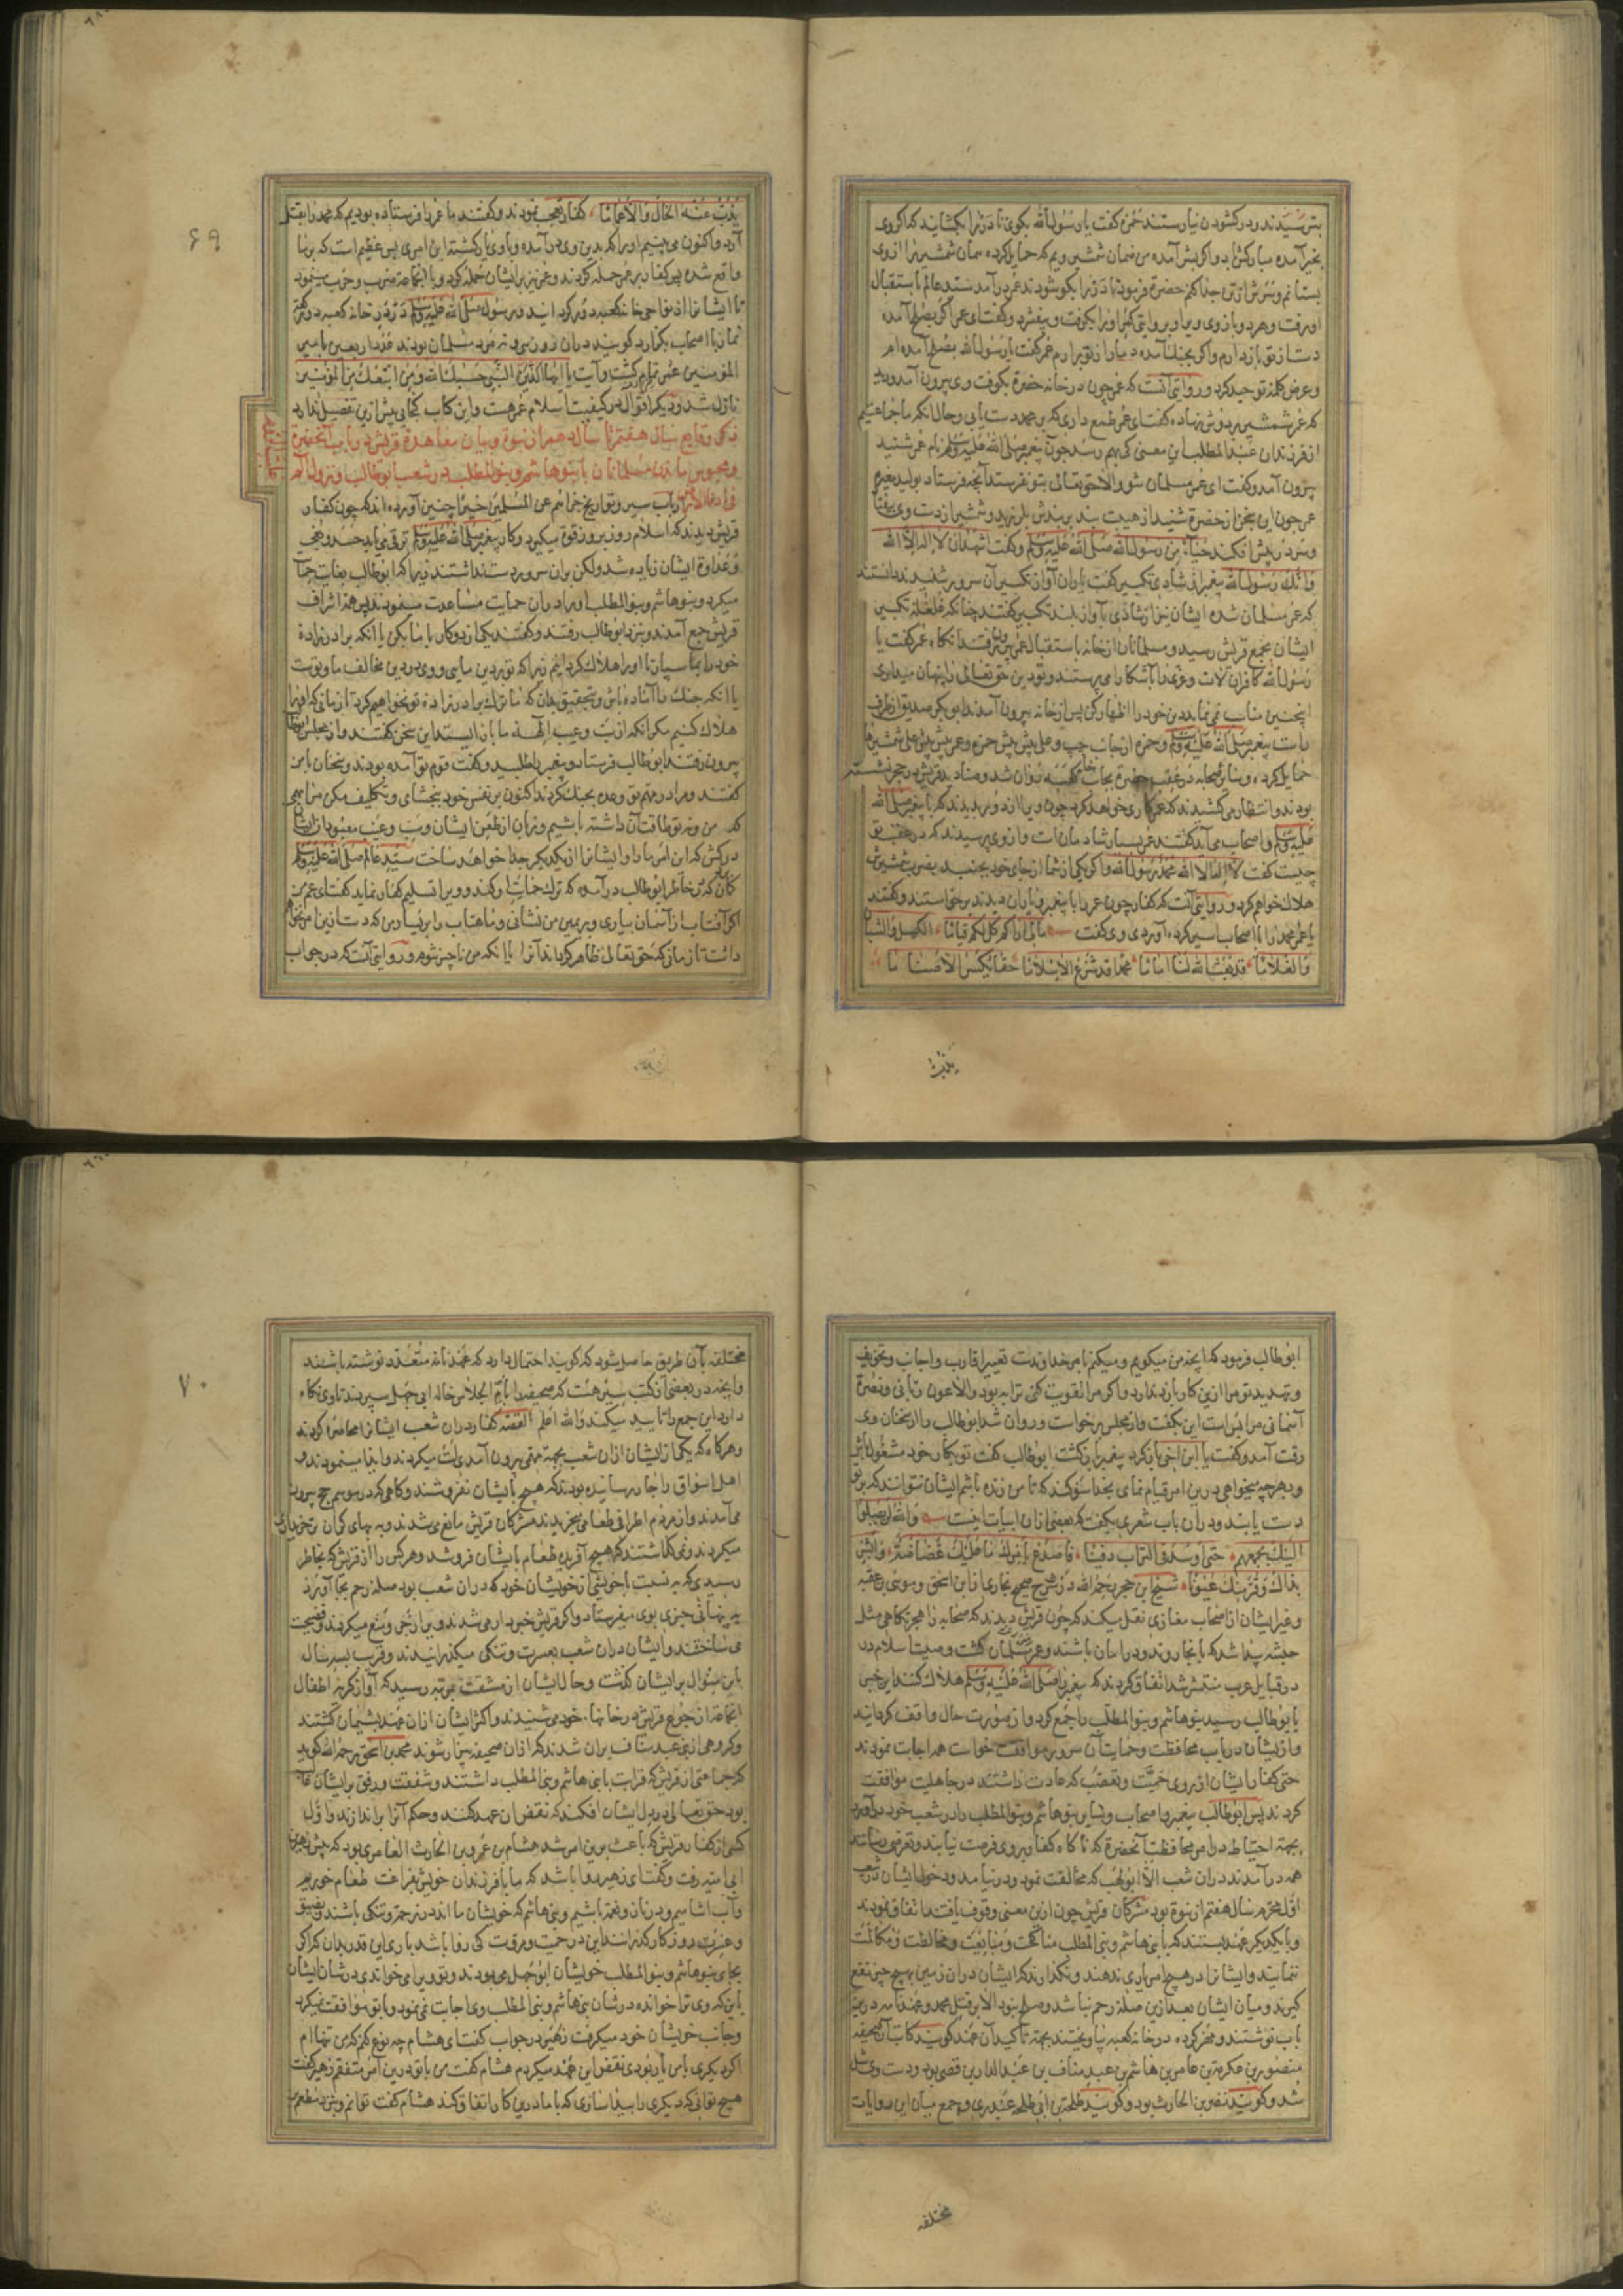 بترسیدند و در کشودن نیارستند حمزه کفت یا رسول الله بکوی تا در را بکشایند که اکر وی
بخیر آمده مبارکش باد و اکر بشر آمده من ضمان شمشیر ویم که حمایل کرده همان شمشیر را از وی
بستانم و سرش از تن جدا کنم حضرة فرمود تا در را بکوشودند عمر در آمد سید عالم باستقبال
او رفت و هر دو بازوی ویرا و بروایتی کمر او را بکرفت و بیفشرد و کفت ای عمر اکر بصلح آمده
دست از تو باز دارم و اکر بجنك آمده دمار از تو برارم عمر کفت یا رسول الله بصلح آمده ام
و عرض کلمه توحید کرد و روایتی آنست که عمر چون در خانه حضرة بکوفت وی بیرون آمد و دید
که عمر شمشیر بر دوش نهاده کفت ای عمر طمع داری که بر محمد دست یابی و حال آنکه ما جماعتیم
از فرزندان عبد المطلب این معنی کی بهم رسد چون پیغمبر صلی الله علیه وسلم نام عمر شنید
بیرون آمد و کفت ای عمر مسلمان شو و الا حق تعالی بتو بفرستد آنچه فرستاد بولید مغیره
عمر چون این سخن از حضرة شنید از هیبت بند بر بندش بلرزید و شمشیر از دست وی بیفتاد
و سر در پیش افکند حیاء من رسول الله صلی الله علیه وسلم و کفت اشهد ان لا اله الا الله
وانك رسول الله پیغمبر از شادی تکبیر کفت یاران آواز تکبیر آن سرور شنیدند دانستند
که عمر مسلمان شده ایشان نیز از شادی بآواز بلند تکبیر کفتند چنانکه غلغله تکبیر
ایشان بمجمع قریش رسید و مسلمانان از خانه باستقبال عمر بیرون رفتند آنکاه عمر کفت یا
رسول الله کافران لات و عزی را آشکارا می پرستند و تو دین حق تعالی را پنهان میداری
اینچنین مناسب نمی نماید دین خود را اظهار کن پس از خانه بیرون آمدند ابو بکر صدیق از طرف
راست پیغمبر صلی الله علیه وسلم و حمزه از جانب چپ و علی پیش پیش حمزه و عمر پیش پیش علی شمشیرها
حمایل کرده و سایر صحابه در عقب حضرة بجانب خانه کعبه روان شد و صنادید قریش در حجر نشسته
بودند و انتظار می کشیدند که عمر چه کاری خواهد کرد چون ویرا از دور بدیدند که با پیغمبر صلی الله
علیه وسلم و اصحاب می آید کفتند عمر بسیار شادمان است و از وی پرسیدند که در عقب تو
چیست کفت لا اله الا الله محمد رسول الله و اکر یکی از شما از جای خود بجنبد بضرب شمشیرش
هلاك خواهم کرد و روایتی آنست که کفار چون عمر را با پیغمبر و یاران دیدند برخاستند و کفتند
یا عمر محمد را با اصحاب اسیر کرده آوردی وی کفت مالی اراکم کلکم قیاما الکهل والشبا
والغلاما قد بعث الله لنا اماما محمدا قد شرع الاسلاما حقا یکسر الاصناما
یذبّ
یذب عنه الخال والاعماما کفار تعجب نمودند و کفتند ما عمر را فرستاده بودیم که محمد را بقتل
آرد و اکنون می بینیم او را که بدین وی در آمده و با وی یار کشته این امری بس عظیم است که بر ما
واقع شده پس کفار بر عمر حمله کردند و عمر نیز بر ایشان حمله کرد و با آنجماعة ضرب و حرب مینمود
تا ایشانرا از نواحی خانه کعبه دور کردانید و رسول صلی الله علیه وسلم در درون خانه کعبه دو رکعت
نماز با اصحاب بکزارد کویند در آن زمان سی و نه مرد مسلمان بودند عدد اربعین بامیر
المؤمنین عمر تمام کشت و آیت یا ایها النبی حسبك الله ومن اتبعك من المؤمنین
نازل شد و دیکر اقوال در کیفیت اسلام عمر هست و این کتاب کنجایی بیش ازین تفصیل ندارد
ذکر وقایع سال هفتم تا سال دهم از نبوة و بیان معاهدة قریش در باب آنحضرة
و محبوس ماندن مسلمانان با بنو هاشم و بنو المطلب در شعب ابو طالب و نزول آیه
ارباب سیر و تواریخ جزاهم عن المسلمین خیرا چنین آورده اند که چون کفار
قریش دیدند که اسلام روز بروز قوت میکیرد و کار پیغمبر صلی الله علیه وسلم ترقی می یابد حسد و بغی
و عداوة ایشان زیاده شد ولکن بر آن سرور دست نداشتند زیرا که ابو طالب بغایت حمایت
میکرد و بنو هاشم و بنو المطلب او را در آن حمایت مساعدت مینمودند پس همه اشراف
قریش جمع آمدند و نزد ابو طالب رفتند و کفتند یکی از دو کار با ما بکن یا آنکه برادر زادهٔ
خود را بما سپار تا او را هلاك کردانیم زیرا که تو بر دین مایی و وی در دین مخالف ما و تو است
یا آنکه جنك را آماده باش و بتحقیق بدان که ما ترك برادر زاده تو نخواهیم کرد تا زمانی که او را
هلاك کنیم مکر آنکه از سب و عیب آلهه ما باز ایستد این سخن کفتند و از مجلس ابو طالب
بیرون رفتند ابو طالب فرستاد و پیغمبر را طلبید و کفت قوم تو آمده بودند و سخنان با من
کفتند و مرا در مهم تو وعده بجنك کردند اکنون بر نفس خود ببخشای و تکلیف مکن مرا بامری
که من و نه تو طاقت آن داشته باشیم و زبان از طعن ایشان و سب و عیب معبودان ایشان
درکش که این امر ما را و ایشانرا از یکدیکر جدا خواهد ساخت سید عالم صلی الله علیه وسلم
کمان که در خاطر ابو طالب در آمده که ترك حمایت او کند و ویرا تسلیم کفار نماید کفت ای عم من
اکر آفتاب از آسمان بیاری و بر یمین من نشانی و ماهتاب را بر یسار من که دست ازین امر نخواهم
داشت تا زمانی که حق تعالی ظاهر کرداند آنرا یا آنکه من ناچیز شوم و روایتی آنست که در جواب
۶۹
ابو طالب فرمود که آنچه من میکویم و میکنم بامر خداوندست تعییر اقارب و اجانب و تخویف
و تهدید تو مرا ازین کار باز ندارد و اکر مرا تقویت کنی ترا به بود و الا عون ربانی و نصرة
آسمانی مرا بس است این بکفت و از مجلس برخاست و روان شد ابو طالب را از سخنان وی
رقت آمد و کفت یا ابن اخی باز کرد پیغمبر باز کشت ابو طالب کفت تو بکار خود مشغول باش
و بهر چه میخواهی درین امر قیام نمای بخدا سوکند که تا من زنده باشم ایشان نتوانند که بر تو
دست یابند و در آن باب شعری بکفت که بعضی از آن ابیات اینست والله لن یصلوا
الیك بجمعهم حتی اوسد فی التراب دفینا فاصدع بامرك ما علیك غضاضة وابشر
بذاك وقر منك عیونا شیخ ابن حجر رحمه الله در شرح صحیح بخاری از ابن اسحق و موسی بن عقبه
و غیر ایشان از اصحاب مغازی نقل میکند که چون قریش دیدند که صحابه را هجرتکاهی مثل
حبشه پیدا شد که بآنجا روند و در امان باشند و عمر مسلمان کشت و صیت اسلام در
در قبایل عرب منتشر شد اتفاق کردند که پیغمبر را صلی الله علیه وسلم هلاك کنند این خبر
بابو طالب رسید بنو هاشم و بنو المطلب را جمع کرد و از صورت حال واقف کردانید
و از ایشان در باب محافظت و حمایت آن سرور موافقت خواست همه اجابت نمودند
حتی کفار ایشان از روی حمیت و تعصب که عادت داشتند در جاهلیت موافقت
کردند پس ابو طالب پیغمبر و اصحاب و سایر بنو هاشم و بنو المطلب را در شعب خود در آورد
بجهة احتیاط در امر محافظت آنحضرة که ناکاه کفار بر وی فرصت نیابند و تعرضی نرسانند
همه در آمدند در آن شعب الا ابو لهب که مخالفت نمود و در نیامد و دخول ایشان در شعب
اول محرم سال هفتم از نبوة بود مشرکان قریش چون ازین معنی وقوف یافتند اتفاق نمودند
و با یکدیکر عهد بستند که با بنی هاشم و بنی المطلب مناکحت و مبایعت و مخالطت و مکالمت
ننمایند و ایشانرا در هیچ امر یاری ندهند و نکذارند که ایشان در آن زمین بهیچ چیز نفع
کیرند و میان ایشان بعد ازین صله رحم نباشد و صلح نبود الا بر قتل محمد و عهدنامه درین
باب نوشتند و مهر کرده در خانه کعبه بیاویختند بجهة تأکید آن عهد کویند کاتب آن صحیفه
منصور بن عکرمة بن عامر بن هاشم بن عبد مناف بن عبد الدار بن قصی بود و دست وی شل
شد و کویند نضر بن الحارث بود و کویند طلحة بن ابی طلحه عبدری و جمع میان این روایات
مختلفه
مختلفه بآن طریق حاصل شود که کویند احتمال دارد که عهدنامه متعدد نوشته باشند
و آنچه در بعضی از کتب سیر هست که صحیفه را بام الجلاس خاله ابی جهل سپردند تا وی نکاه
دارد این جمع را تأیید میکند والله اعلم القصه کفار در آن شعب ایشانرا محاصره کردند
و هر کاه که یکی از ایشان از آن شعب بجهة مهمی بیرون آمدی لت میکردند و ایذا مینمودند و
اهل اسواق را جار رسانیده بودند که هیچ بایشان نفروشند و کاهی که در موسم حج بیرون
می آمدند و از مردم اطراف طعام میخریدند مشرکان قریش مانع می شدند و به بهای کران تر خریداری
میکردند و نمی کذاشتند که هیچ آفریده طعام بایشان فروشد و هر کس را از قریش که بخاطر
رسیدی که به نسبت با خویشی از خویشان خود که در آن شعب بود صله رحم بجا آورد
به پنهانی چیزی بوی میفرستاد و اکر قریش خبردار می شدند ویرا زجر و منع میکردند و فضیحت
می ساختند و ایشان در آن شعب بعسرت و تنکی میکذرانیدند و قرب سه سال
باین منوال بر ایشان کذشت و حال ایشان از مشقت بمرتبه رسید که آواز کریه اطفال
آنجماعة از جوع قریش در خانها خود می شنیدند و اکثر ایشان از آن عهد پشیمان کشتند
و کروهی از بنی عبد مناف بر آن شدند که از آن صحیفه بیزار شوند محمد بن اسحق رحمه الله کوید
که جماعتی از قریش که قرابت با بنی هاشم و بنی المطلب داشتند و شفقت و رفق بر ایشان
بود حق تعالی در دل ایشان افکند که نقض آن عهد کنند و حکم آنرا براندازند و اول
کسی از کفار قریش که باعث برین امر شد هشام بن عمرو بن الحارث العامری بود که پیش زهیر بن
ابی امیه رفت و کفت ای زهیر روا باشد که ما با فرزندان خویش بفراغت طعام خوریم
و آب آشامیم و در ناز و نعمة باشیم و بنی هاشم که خویشان ما اند در زحمة و تنکی باشند و بضیق
و عسرت روزکار کذرانند این در حمیت و مروت کی روا باشد باری این قدر بدان که اکر
بجای بنو هاشم و بنو المطلب خویشان ابو جهل می بودند و تو ویرا می خواندی در شان ایشان
باین که وی ترا خوانده در شان بنی هاشم و بنی المطلب وی اجابت نمی نمود و با تو موافقت نمیکرد
و جانب خویشان خود میکرفت زهیر در جواب کفت ای هشام چه نوع کنم که من تنها ام
اکر دیکری با من یار بودی نقض این عهد میکردم هشام کفت من با تو درین امر متفقم زهیر کفت
هیچ توانی که دیکری را پیدا سازی که با ما درین کار اتفاق کند هشام کفت توانم و بنزد مطعم بن
۷۰